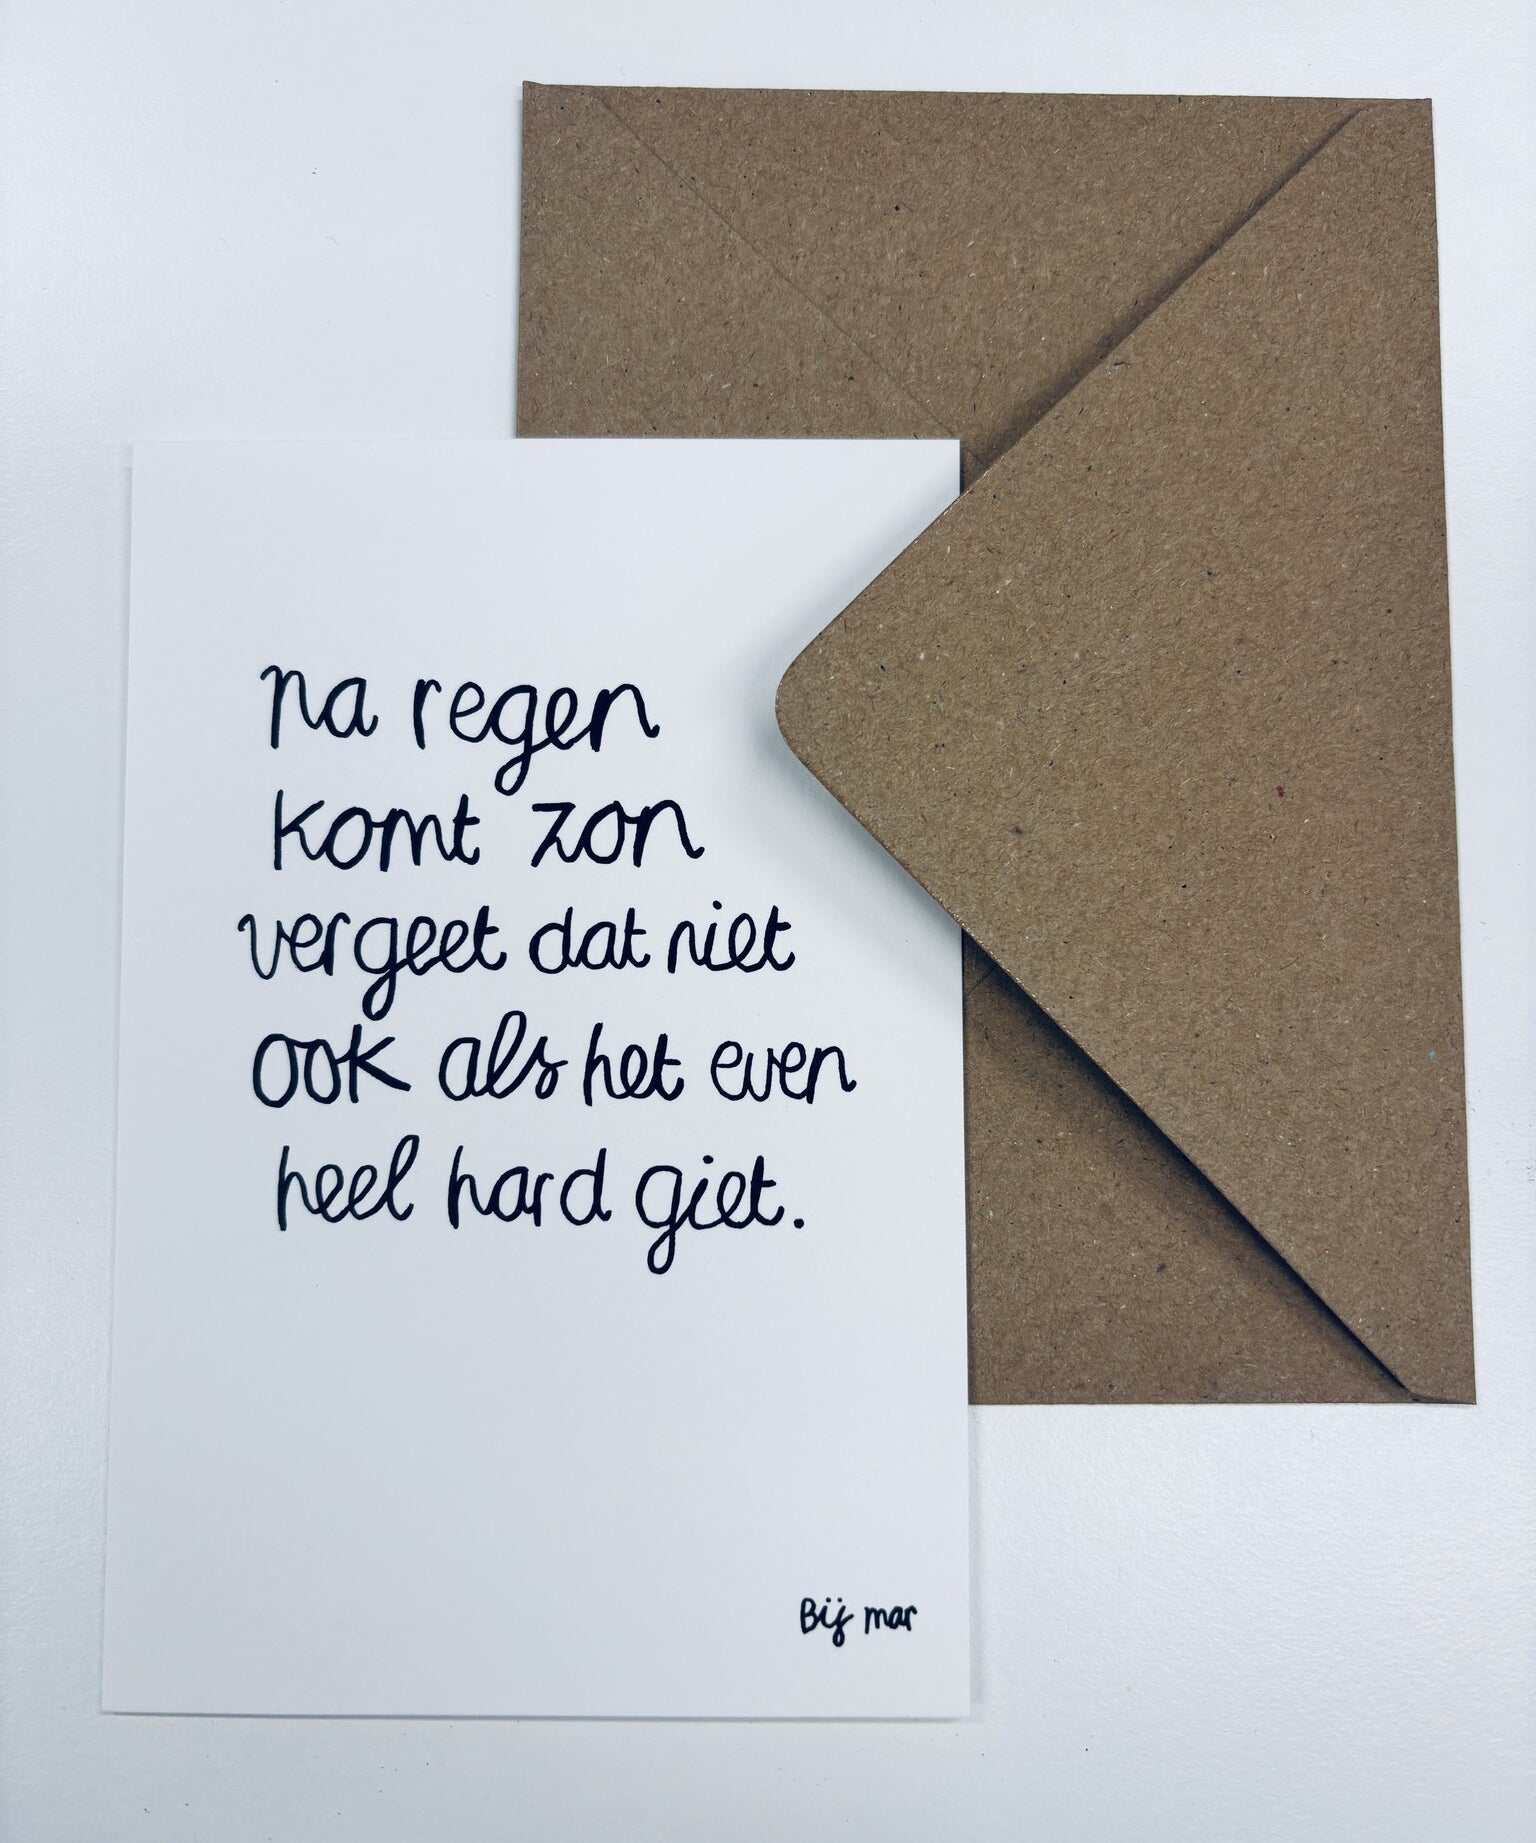 na regen
komt zon
vergeet dat niet
ook als het even
heel hard giet.
Bij mar